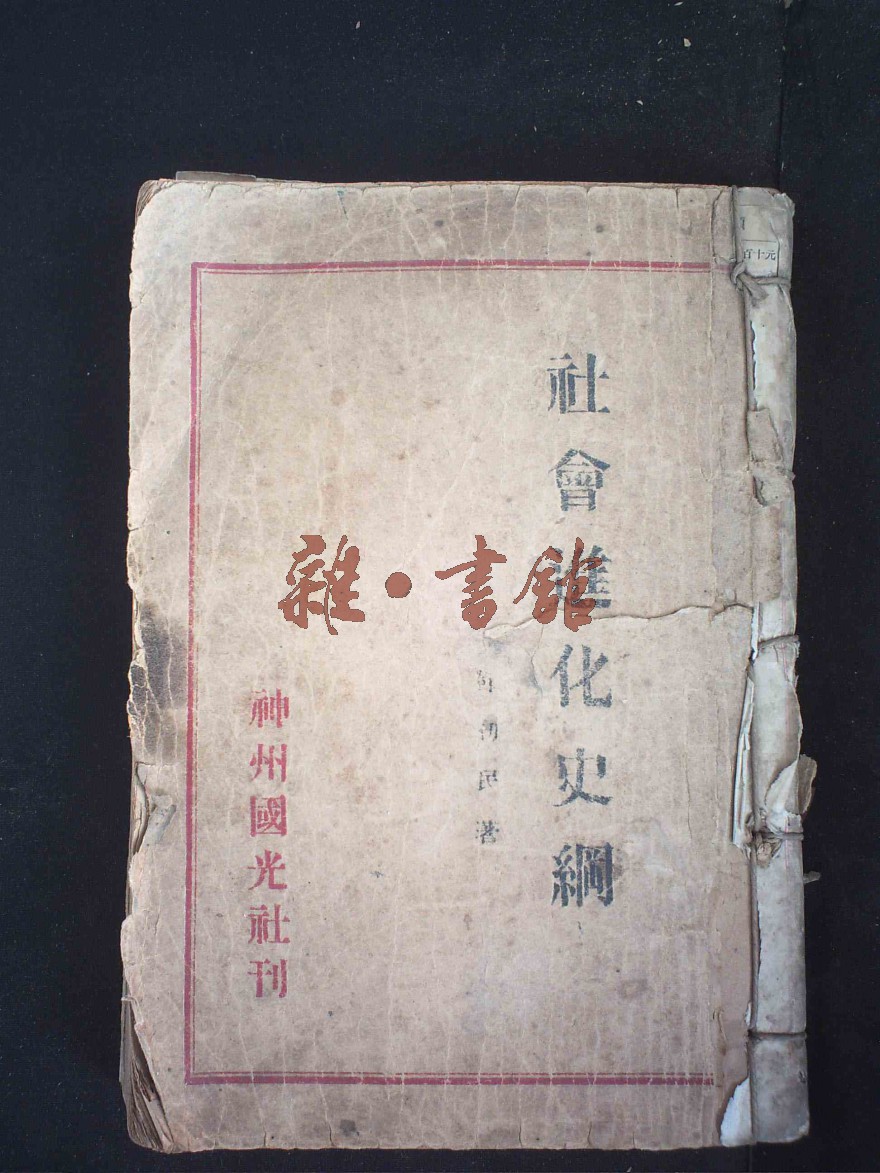 百十元
社會進化史綱
初民著
神州國光社刊
雜·書館